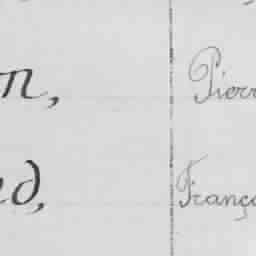 n, Pierr
nd, Franço